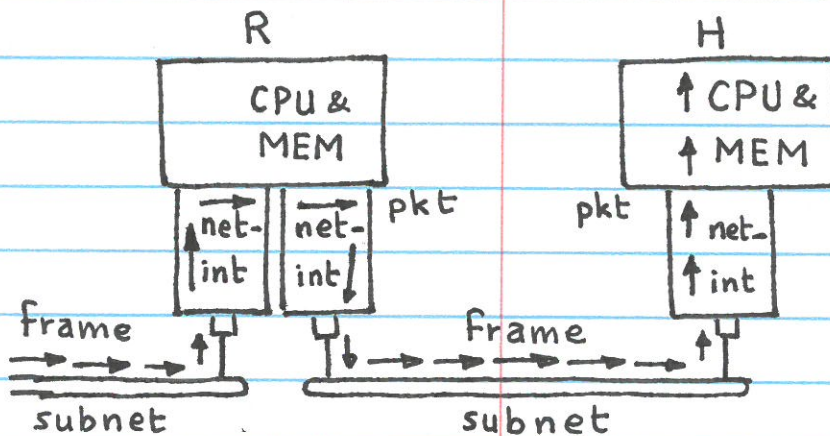 R
H
CPU &
MEM
CPU &
MEM
net-
int
net-
int
pkt
pkt
net-
int
frame
Frame
subnet
subnet